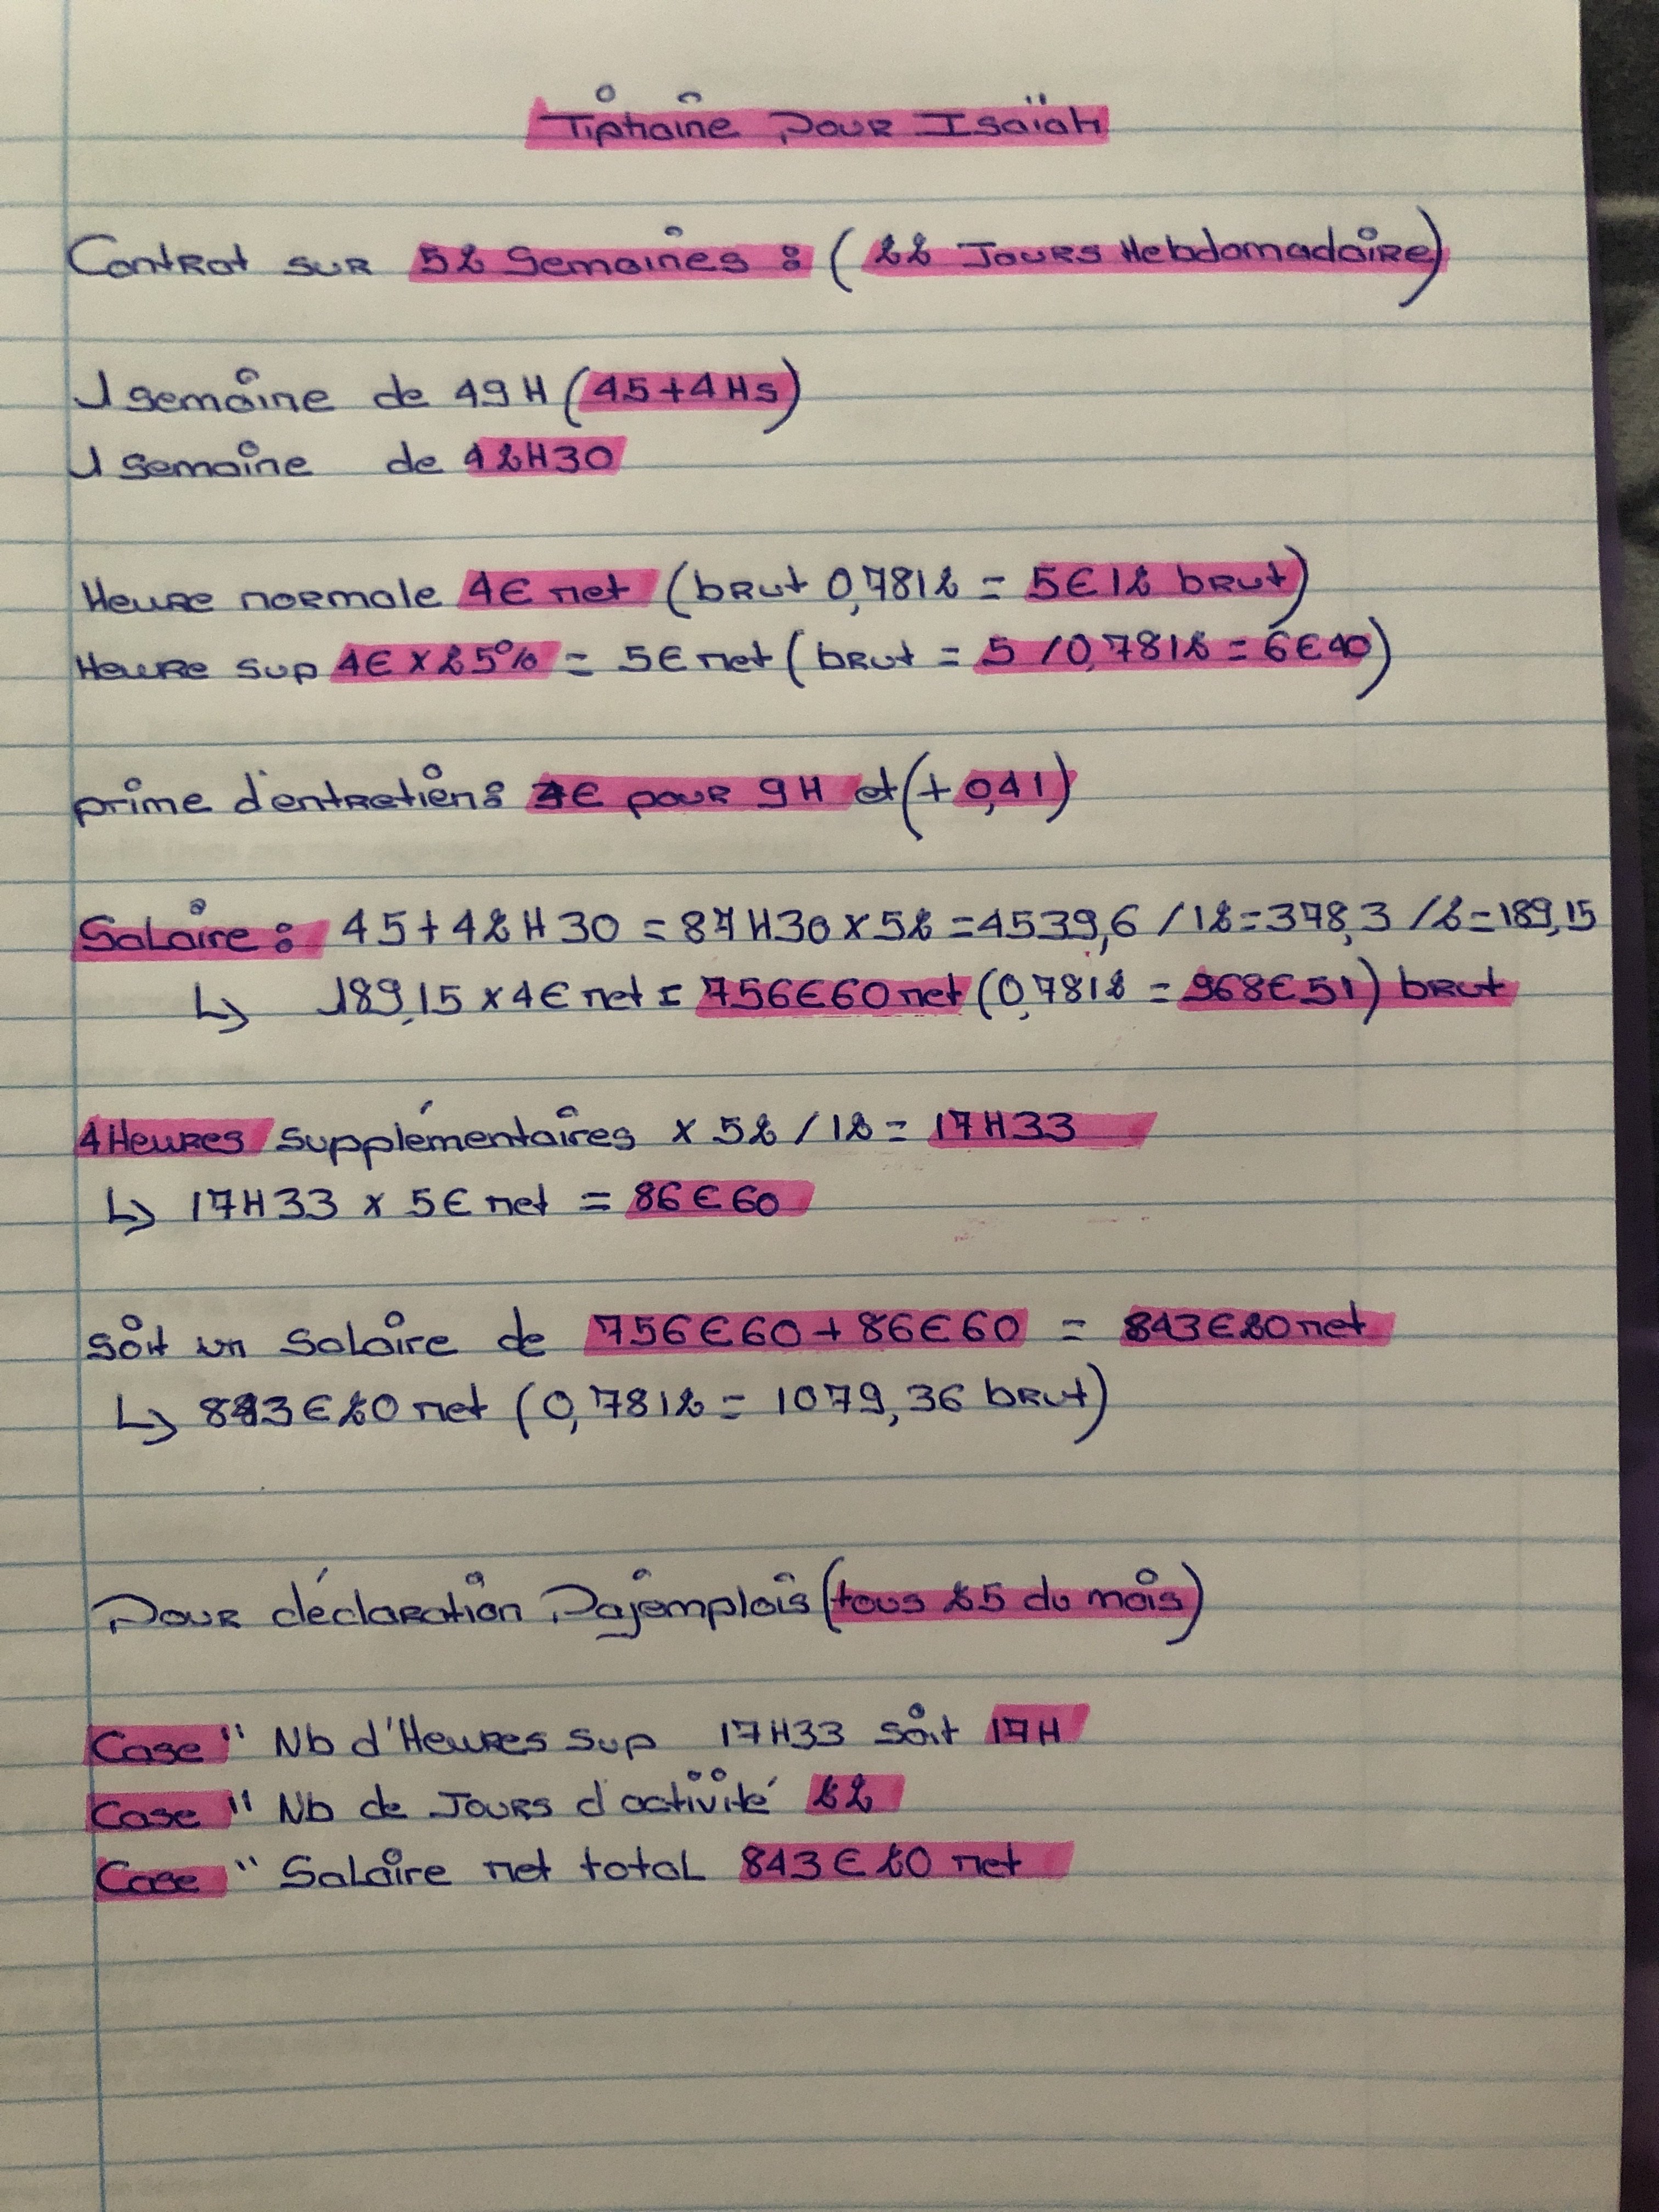 Tiphaine pour Isaïah
Contrat sur 52 Semaines : (22 Jours Hebdomadaire)
1 semaine de 49H (45+4Hs)
1 semaine de 42H30
Heure normale 4€ net (brut 0,7812 = 5€12 brut)
Heure sup 4€ x 25% = 5€ net (brut = 5 / 0,7812 = 6€40)
prime d'entretien : 4€ pour 9H et (+ 0,41)
Salaire : 45 + 42H30 = 87H30 x 52 = 4539,6 / 12 = 378,3 / 2 = 189,15
↳ 189,15 x 4€ net = 756€60 net (0,7812 = 968€51) brut
4 Heures supplémentaires x 52 / 12 = 17H33
↳ 17H33 x 5€ net = 86€60
soit un salaire de 756€60 + 86€60 = 843€20 net
↳ 843€20 net (0,7812 = 1079,36 brut)
Pour déclaration Pajemplois (tous 25 du mois)
Case " Nb d'Heures sup 17H33 soit 17H
Case " Nb de Jours d'activité 22
Case " Salaire net total 843€20 net